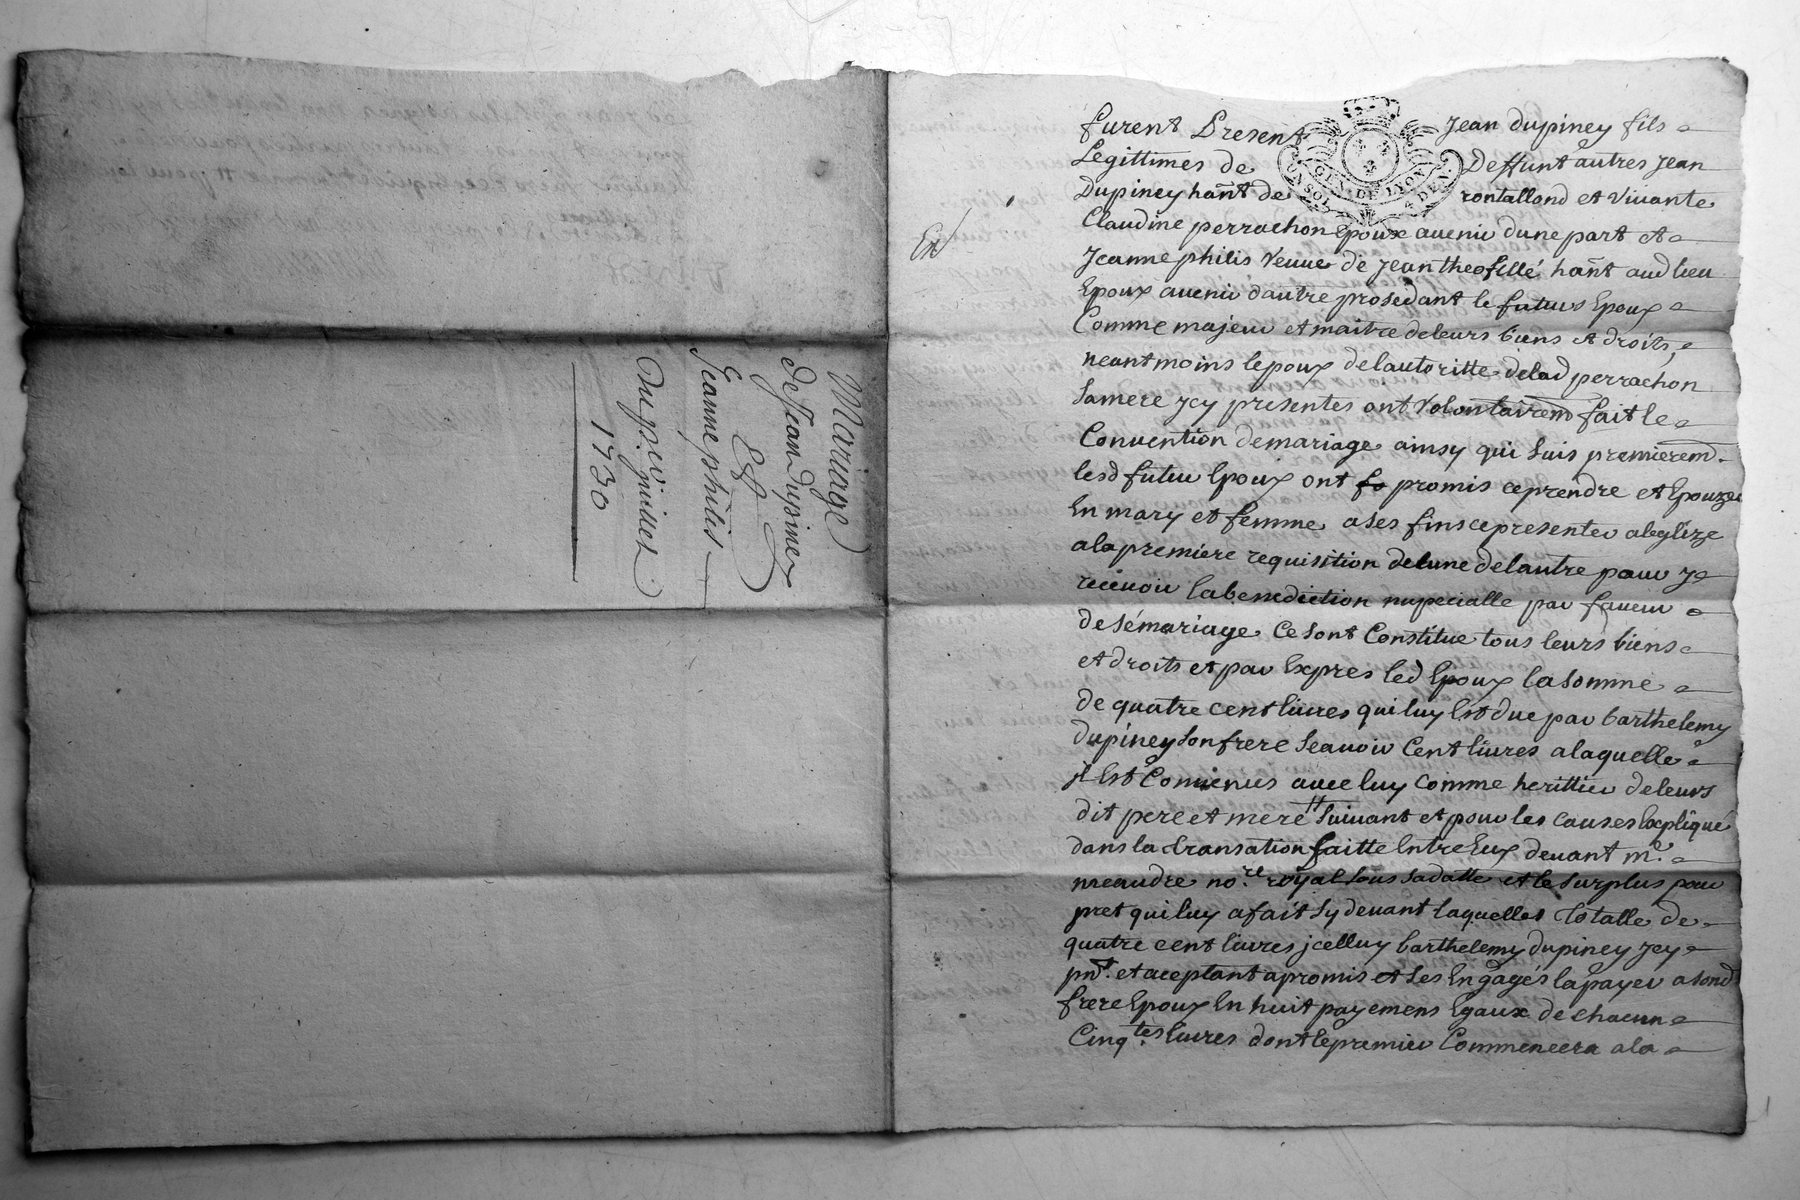 Mariage
de Jean dupiney
Et
Jeanne philis
Du p.er juillet
1730
Ex
furent Present Jean dupiney fils
Legittimes de Deffunt autres Jean
Dupiney hañt de rontallond et Vivante
Claudine perrachon Epoux avenir dune part et
Jeanne philis Veuve de Jean theofille hañt aud lieu
Epoux avenir dautre prosedant le futurs Epoux
Comme majeur et maitre de leurs biens et droits,
neantmoins lepoux de lautoritte delad perrachon
Samere Jcy presentes ont Volontairem fait le
Convention demariage ainsy qui Suis premierem
lesd futur Epoux ont fo promis ceprendre et Epouzer
En mary et femme a ses fins cepresenter aleglize
alapremiere requisition delune delautre pour y
recevoir la benediction nupecialle par faveur
de sémariage Ce sont Constitue tous leurs biens
et droits et par Expres led Epoux la Somme
de quatre cent livres qui luy Est due par barthelemy
dupiney Son frere Seavoir Cent livres a laquelle
jl Est Convenus avec luy Comme herittier de leurs
dit pere et mere Suivant et pour les causes Expliqué
dans la transation faitte Entre Eux devant m.e
meaudre no.re royal Sous Sadatte et le Surplus pour
pret qui luy a fait Sy devant laquelles Totalle de
quatre cent livres jcelluy barthelemy dupiney Jcy
pnt. et aceptant a promis et Ses En gagés la payer a Sond
frere Epoux En huit payemens Egaux de chacun
Cinq.tes livres dont le premier Commencera ala
GEN. DE LYON
UN SOL 4 DEN.